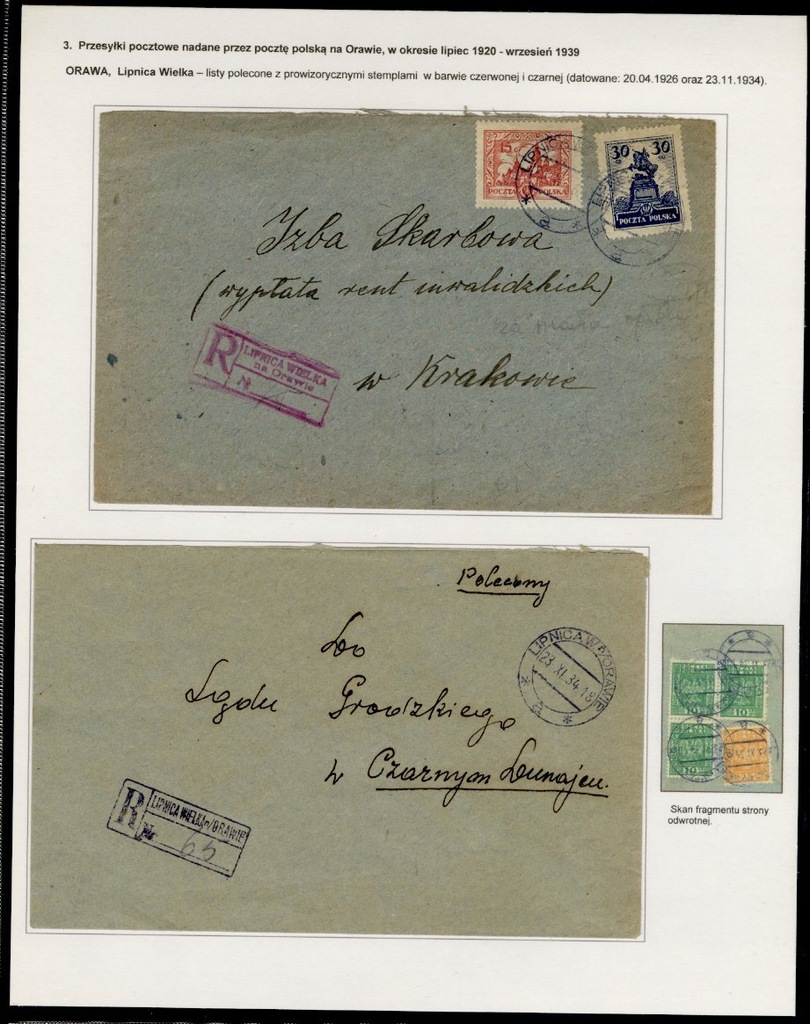 3. Przesyłki pocztowe nadane przez pocztę polską na Orawie, w okresie lipiec 1920 - wrzesień 1939
ORAWA, Lipnica Wielka – listy polecone z prowizorycznymi stemplami w barwie czerwonej i czarnej (datowane: 20.04.1926 oraz 23.11.1934).
15
POCZTA POLSKA
LIPNICA
30 30
POCZTA POLSKA
Izba Skarbowa
(wypłata rent inwalidzkich)
za mała
R LIPNICA WIELKA
na Orawie
N
w Krakowie
Polecony
LIPNICA W./ORAWIE
23.XI.34.18
a
Do
Sądu Grodzkiego
w Czarnym Dunajcu.
R LIPNICA WIELKA n/ORAWIE
Nr 65
10 10
10
Skan fragmentu strony
odwrotnej.